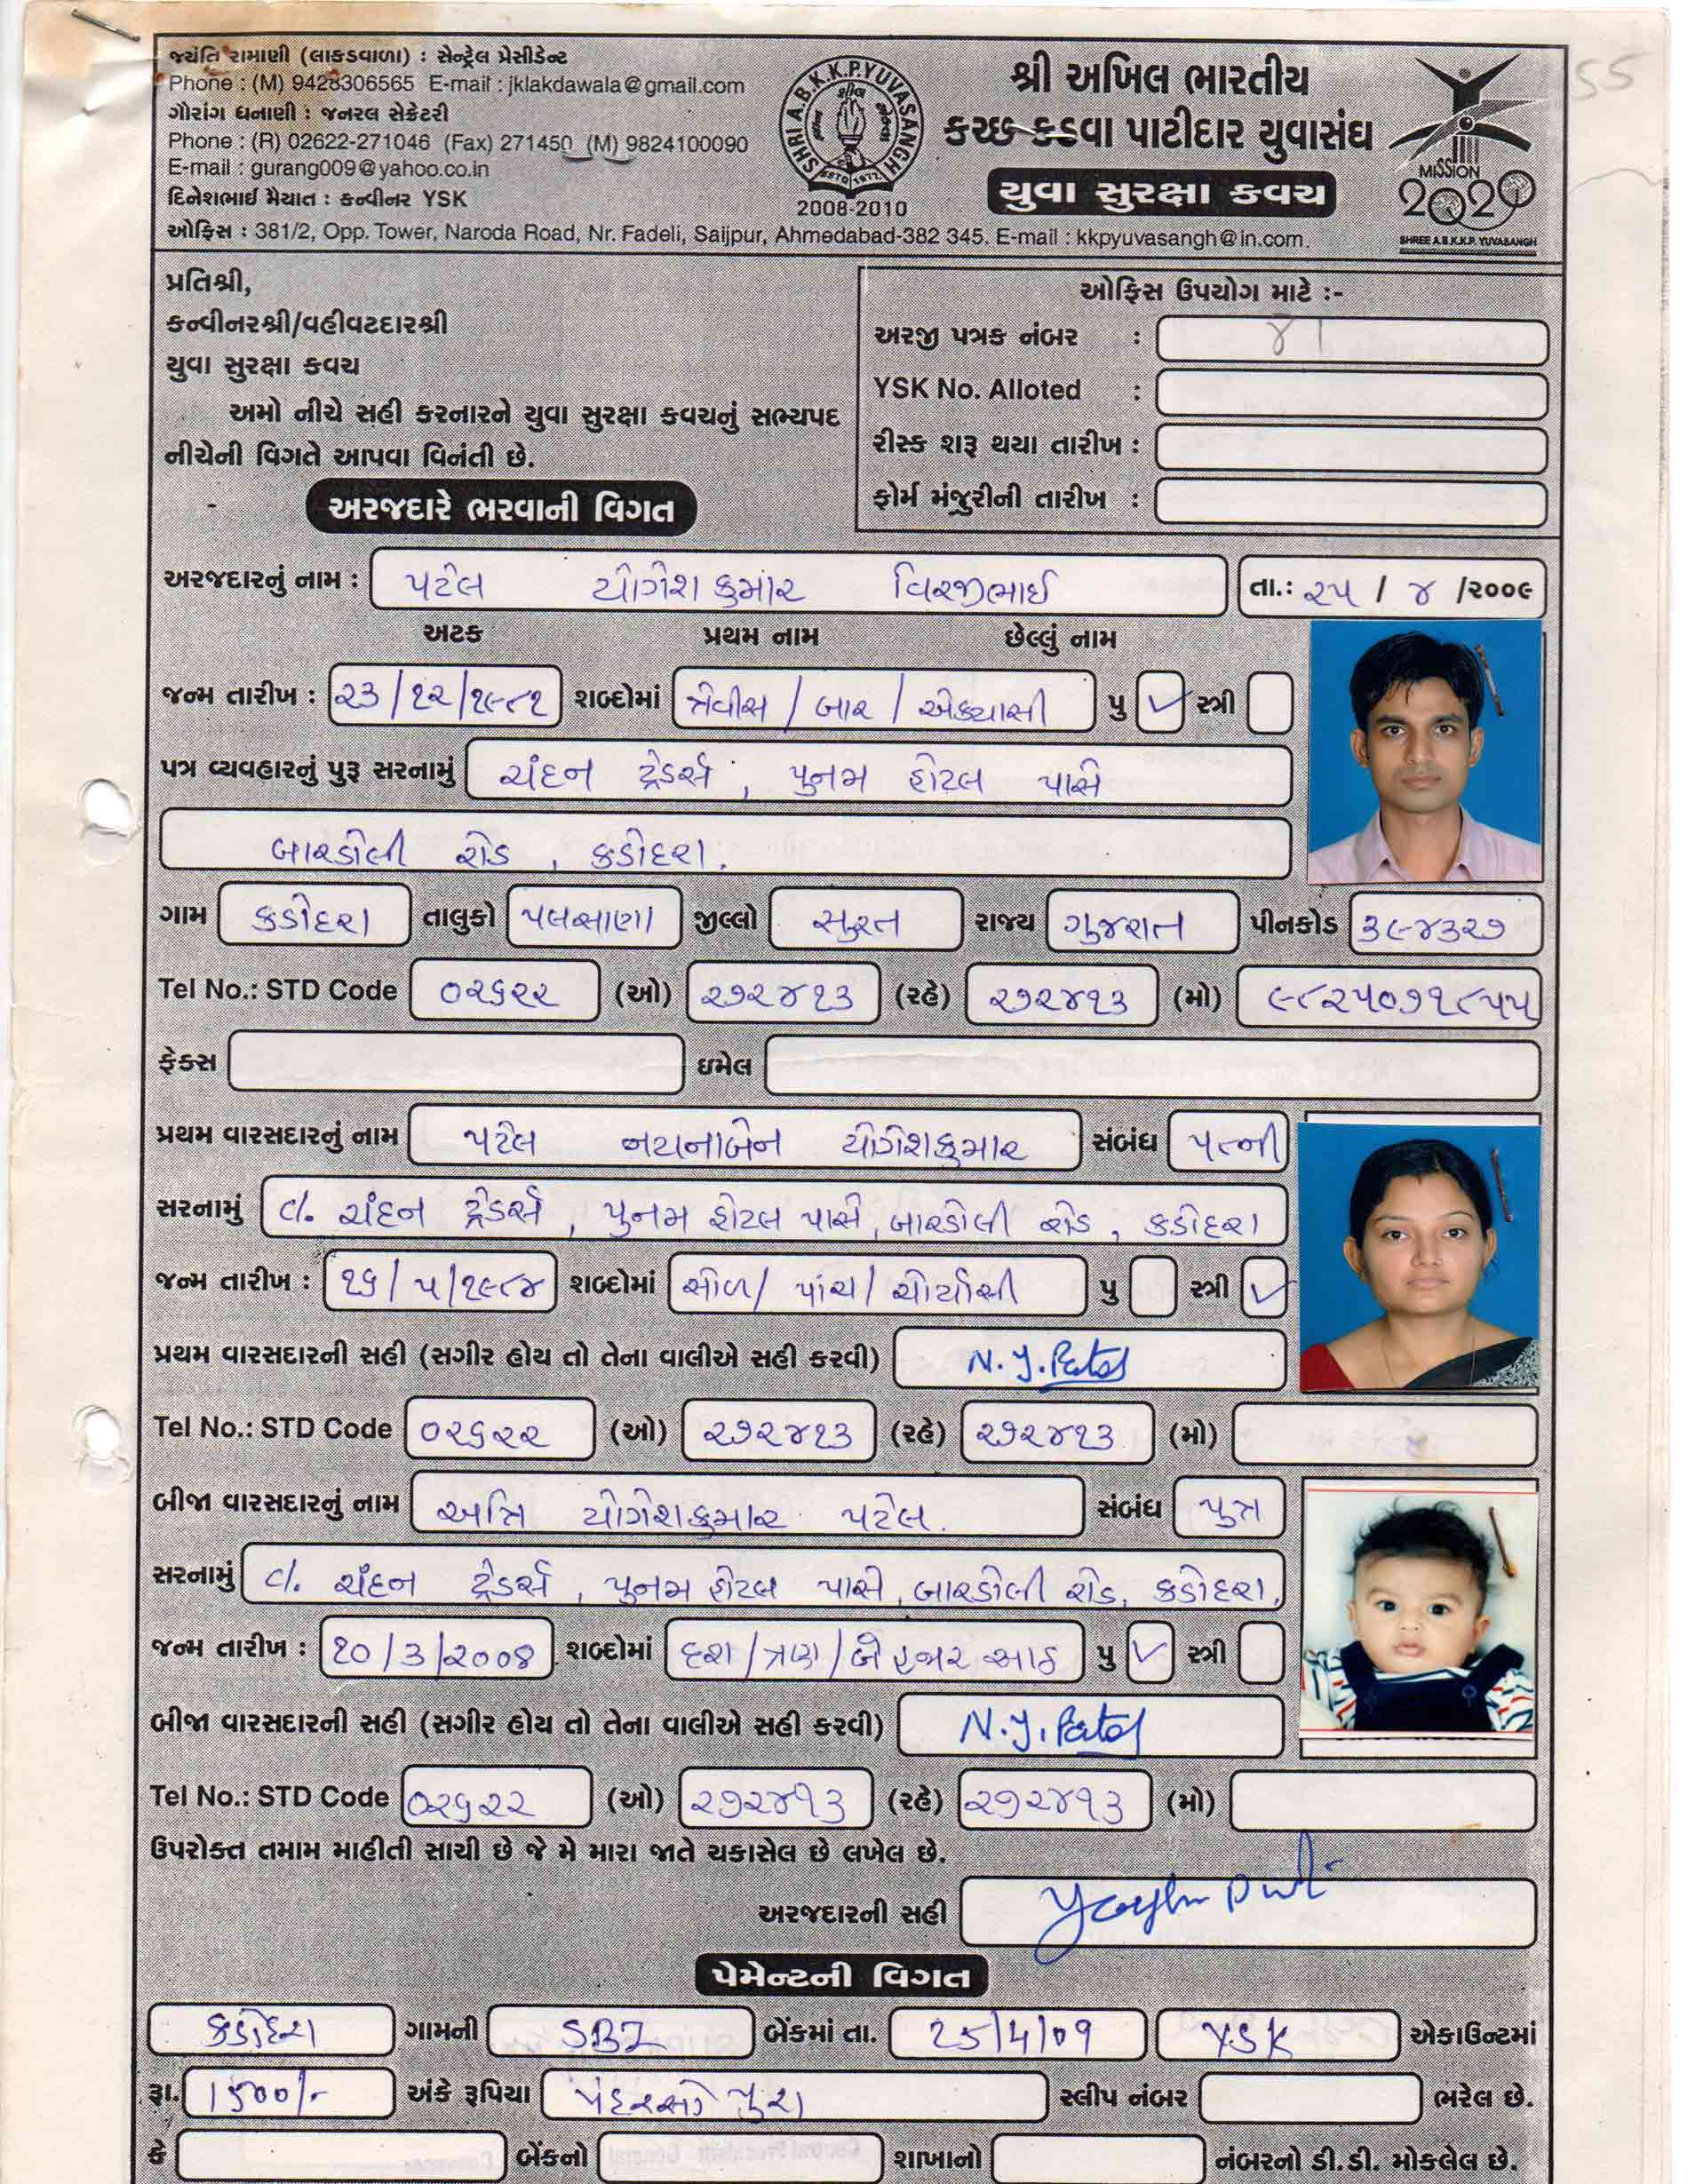 જયંતિ રામાણી (લાકડાવાળા) : સેન્ટ્રલ પ્રેસીડેન્ટ
Phone : (M) 9428306565 E-mail : jklakdawala@gmail.com
ગૌરાંગ ધનાણી : જનરલ સેક્રેટરી
Phone : (R) 02622-271046 (Fax) 271450 (M) 9824100090
E-mail : gurang009@yahoo.co.in
દિનેશભાઈ મૈયાત : કન્વીનર YSK
ઓફિસ : 381/2, Opp. Tower, Naroda Road, Nr. Fadeli, Saijpur, Ahmedabad-382 345. E-mail : kkpyuvasangh@in.com.
SHRI A.B.K.K.P.YUVASANGH
ESTD 1972
2008-2010
શ્રી અખિલ ભારતીય
કચ્છ કડવા પાટીદાર યુવાસંઘ
યુવા સુરક્ષા કવચ
MISSION
2020
SHREE A.B.K.K.P. YUVASANGH
55
પ્રતિશ્રી,
કન્વીનરશ્રી/વહીવટદારશ્રી
યુવા સુરક્ષા કવચ
અમો નીચે સહી કરનારને યુવા સુરક્ષા કવચનું સભ્યપદ
નીચેની વિગતે આપવા વિનંતી છે.
અરજદારે ભરવાની વિગત
ઓફિસ ઉપયોગ માટે :-
અરજી પત્રક નંબર : ૪1
YSK No. Alloted :
રીસ્ક શરૂ થયા તારીખ :
ફોર્મ મંજુરીની તારીખ :
અરજદારનું નામ : પટેલ યોગેશકુમાર વિરજીભાઈ તા.: ૨૫ / ૪ /૨૦૦૯
અટક પ્રથમ નામ છેલ્લું નામ
જન્મ તારીખ : ૨૩/૧૨/૧૯૮૧ શબ્દોમાં ત્રેવીસ / બાર / એક્યાસી પુ ✓ સ્ત્રી
પત્ર વ્યવહારનું પુરૂ સરનામું ચંદન ટ્રેડર્સ, પુનમ હોટલ પાસે
બારડોલી રોડ, કડોદરા.
ગામ કડોદરા તાલુકો પલસાણા જીલ્લો સુરત રાજ્ય ગુજરાત પીનકોડ ૩૯૪૩૨૭
Tel No.: STD Code ૦૨૬૨૨ (ઓ) ૨૭૨૪૧૩ (રહે) ૨૭૨૪૧૩ (મો) ૯૮૨૫૦૭૧૮૫૫
ફેક્સ ઇમેલ
પ્રથમ વારસદારનું નામ પટેલ નયનાબેન યોગેશકુમાર સંબંધ પત્ની
સરનામું c/. ચંદન ટ્રેડર્સ, પુનમ હોટલ પાસે, બારડોલી રોડ, કડોદરા
જન્મ તારીખ : ૧૬/ ૫/૧૯૮૪ શબ્દોમાં સોળ/ પાંચ/ ચોર્યાસી પુ સ્ત્રી ✓
પ્રથમ વારસદારની સહી (સગીર હોય તો તેના વાલીએ સહી કરવી) N.Y.Patel
Tel No.: STD Code ૦૨૬૨૨ (ઓ) ૨૭૨૪૧૩ (રહે) ૨૭૨૪૧૩ (મો)
બીજા વારસદારનું નામ અત્રિ યોગેશકુમાર પટેલ. સંબંધ પુત્ર
સરનામું c/. ચંદન ટ્રેડર્સ, પુનમ હોટલ પાસે, બારડોલી રોડ, કડોદરા.
જન્મ તારીખ : ૧૦/૩/૨૦૦8 શબ્દોમાં દશ/ત્રણ/બે હજાર આઠ પુ ✓ સ્ત્રી
બીજા વારસદારની સહી (સગીર હોય તો તેના વાલીએ સહી કરવી) N.Y.Patel
Tel No.: STD Code ૦૨૬૨૨ (ઓ) ૨૭૨૪૧૩ (રહે) ૨૭૨૪૧૩ (મો)
ઉપરોક્ત તમામ માહીતી સાચી છે જે મે મારા જાતે ચકાસેલ છે લખેલ છે.
અરજદારની સહી
પેમેન્ટની વિગત
કડોદરા ગામની SBI બેંકમાં તા. 25/4/09 YSK એકાઉન્ટમાં
રૂા. 1500/- અંકે રૂપિયા પંદરસો પુરા સ્લીપ નંબર ભરેલ છે.
કે બેંકનો શાખાનો નંબરનો ડી.ડી. મોકલેલ છે.